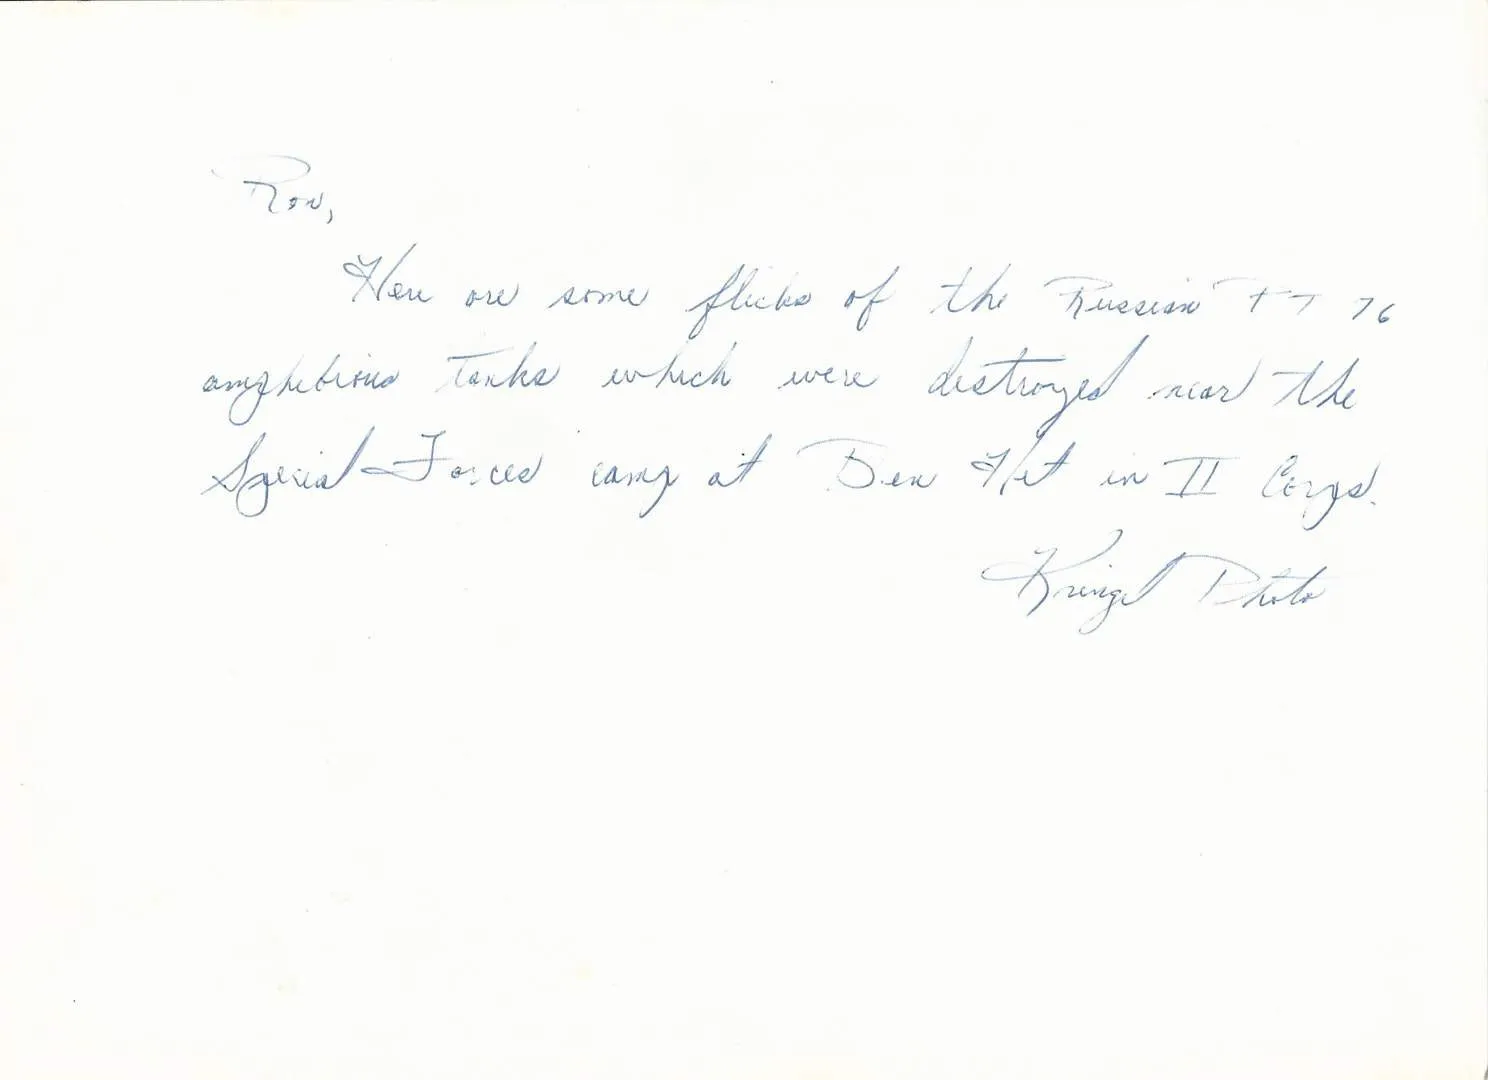 Ron,
Here are some flicks of the Russian PT 76
amphibious tanks which were destroyed near the
Special Forces camp at Ben Het in II Corps.
Photo